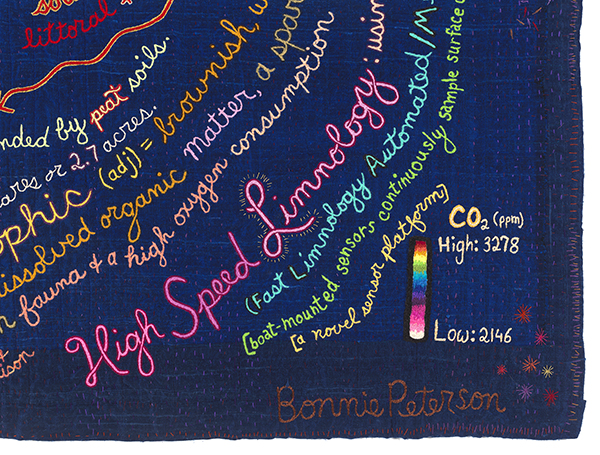 littoral
nded by peat soils.
ares or 2.7 acres.
ophic (adj) = brownish, w
dissolved organic matter, a spar
n fauna & a high oxygen consumption
High Speed Limnology: using
(Fast Limnology Automated/M
[boat-mounted sensors continuously sample surface
[a novel sensor platform]
CO2 (ppm)
High: 3278
Low: 2146
ison
Bonnie Peterson